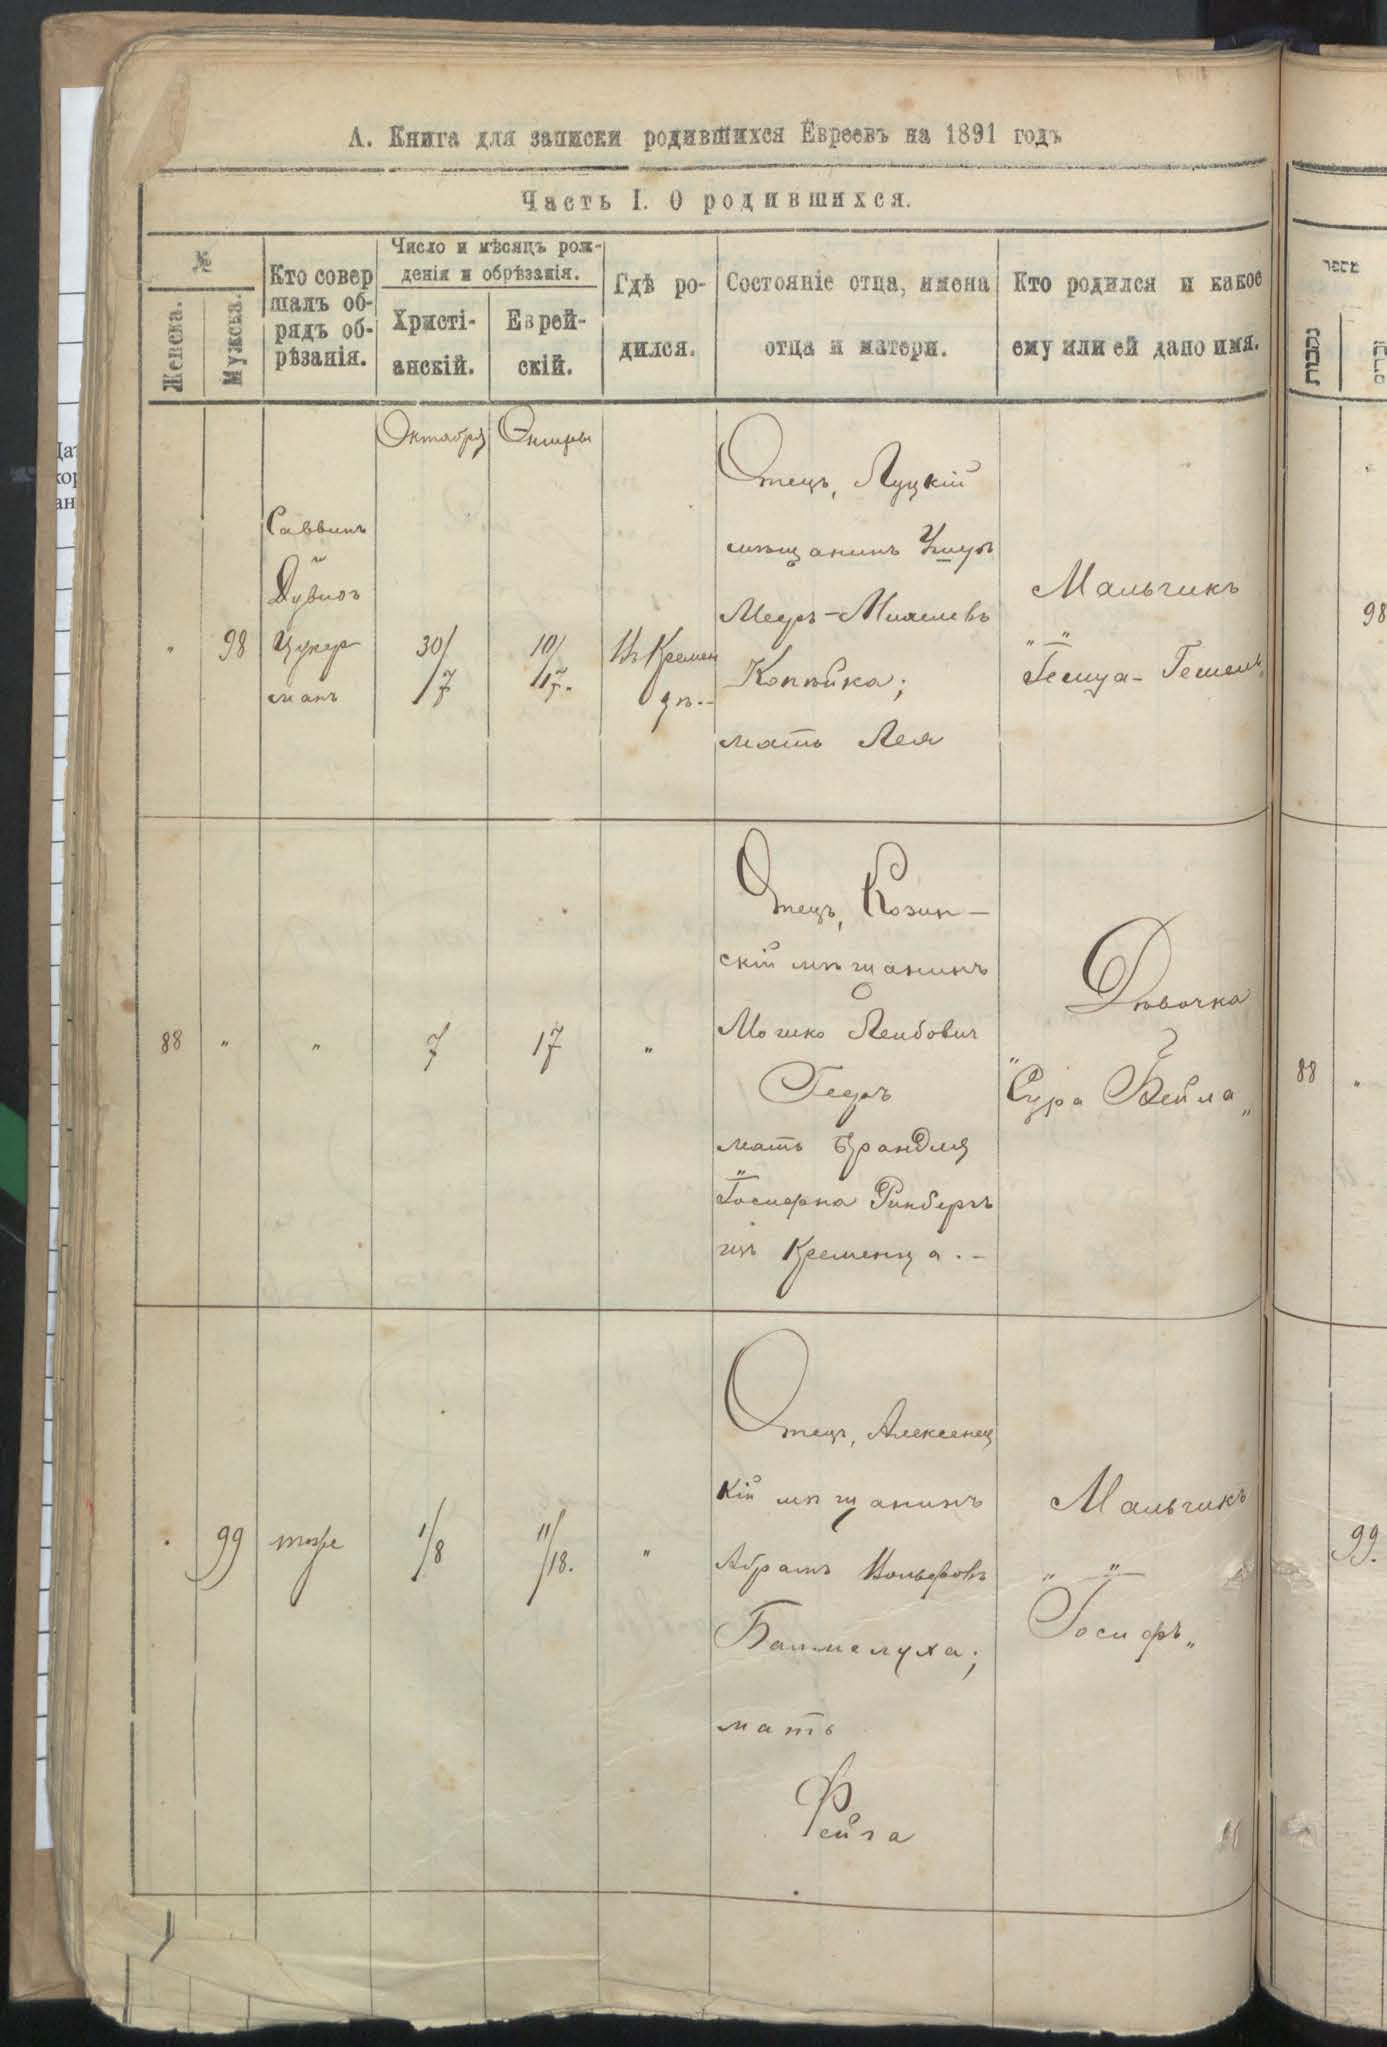 А. Книга для записки родившихся Евреевъ на 1891 годъ
Часть I. О родившихся.
№
Женска.
Мужска.
Кто совер
шалъ об-
рядъ об-
рѣзанія.
Число и мѣсяцъ рож-
денія и обрѣзанія.
Христі-
анскій.
Еврей-
скій.
Гдѣ ро-
дился.
Состояніе отца, имена
отца и матери.
Кто родился и какое
ему или ей дано имя.
מספר
נקבות
זכרים
Октября
"
98
Саввинъ
Цукер
манъ
30/
7
10/
17.
Въ Кремен
цѣ..
Отецъ, Луцкій
мѣщанинъ
Мееръ-
Копѣйка;
мать Лея
Мальчикъ
"Іешуа- Гешель"
98
88
"
"
7
17
"
Отецъ, Козин-
скій мѣщанинъ
Мошко Лейбович
Гееръ
мать Брандля
Іосифна Ринбергъ
изъ Кременца.-
Дѣвочка
"Сура Бейла"
88
"
99
тоже
1/8
11/18.
"
Отецъ, Алексенец
кій мѣщанинъ
Абрамъ Вольфовъ
Башмелуха;
мать
Фейга
Мальчикъ
"Іосифъ"
99.